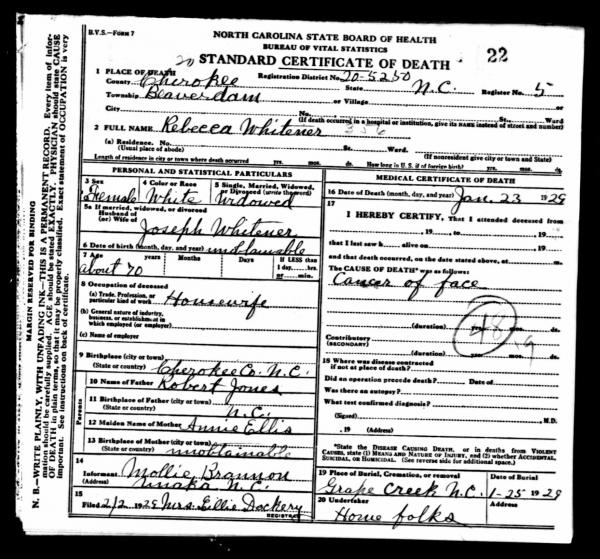 B.V.S.—FORM 7
NORTH CAROLINA STATE BOARD OF HEALTH
BUREAU OF VITAL STATISTICS
20 STANDARD CERTIFICATE OF DEATH 22
1 PLACE OF DEATH Registration District No. 20-5250
County Cherokee State N.C. Register No. 5
Township Beaverdam or Village
City No. St. Ward.
(If death occurred in a hospital or institution, give its NAME instead of street and number)
2 FULL NAME Rebecca Whitener 356
(a) Residence. No. St. Ward.
(Usual place of abode) (If nonresident give city or town and State)
Length of residence in city or town where death occurred yrs. mos. ds. How long in U. S. if of foreign birth? yrs. mos. ds.
PERSONAL AND STATISTICAL PARTICULARS
3 Sex 4 Color or Race 5 Single, Married, Widowed, or Divorced (write the word)
Female White Widowed
5a If married, widowed, or divorced
Husband of
(or) Wife of Joseph Whitener
6 Date of birth (month, day, and year) unobtainable
7 Age years Months Days If LESS than 1 day, hrs. or min.
about 70
8 Occupation of deceased
(a) Trade, Profession, or particular kind of work Housewife
(b) General nature of industry, business, or establishment in which employed (or employer)
(c) Name of employer
9 Birthplace (city or town)
(State or country) Cherokee Co. N.C.
Parents
10 Name of Father Robert Jones
11 Birthplace of Father (city or town)
(State or country) N.C.
12 Maiden Name of Mother Annie Ellis
13 Birthplace of Mother (city or town)
(State or country) unobtainable
14
Informant Mollie Brannon
(Address) Unaka N.C.
15
Filed 2/2 1929 Mrs. Ellie Dockery
REGISTRAR
MEDICAL CERTIFICATE OF DEATH
16 Date of Death (month, day, and year) Jan. 23 1929
17
I HEREBY CERTIFY, That I attended deceased from
, 19 , to , 19
that I last saw h alive on , 19
and that death occurred, on the date stated above, at m.
The CAUSE OF DEATH* was as follows:
Cancer of face
(duration) yrs. mos. ds.
48
Contributory
(SECONDARY)
(duration) yrs. mos. ds.
18 Where was disease contracted
if not at place of death?
Did an operation precede death? Date of
Was there an autopsy?
What test confirmed diagnosis?
(Signed) M.D.
, 19 (Address)
*State the DISEASE CAUSING DEATH, or in deaths from VIOLENT
CAUSES, state (1) MEANS AND NATURE OF INJURY, and (2) whether ACCIDENTAL,
SUICIDAL, or HOMICIDAL. (See reverse side for additional space.)
19 Place of Burial, Cremation, or removal Date of Burial
Grape Creek N.C. 1-25 1929
20 Undertaker Address
Home folks
MARGIN RESERVED FOR BINDING
N. B.—WRITE PLAINLY, WITH UNFADING INK—THIS IS A PERMANENT RECORD. Every item of information should be carefully supplied. AGE should be stated EXACTLY. PHYSICIAN should state CAUSE OF DEATH in plain terms, so that it may be properly classified. Exact statement of OCCUPATION is very important. See instructions on back of certificate.